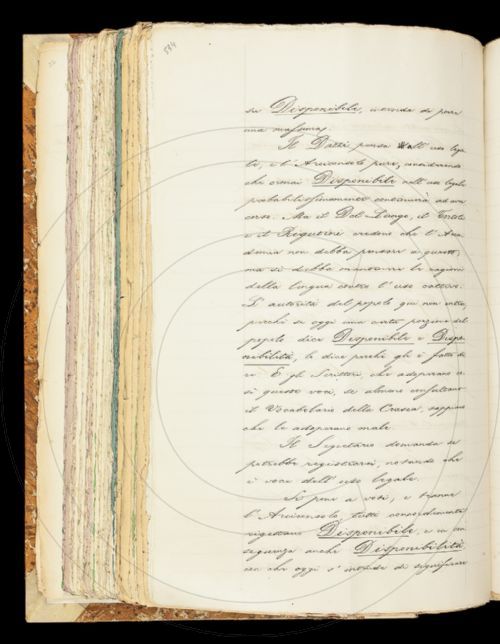 584
su Disponibile, vi è onda di porre
una massima.
Il Dazzi pensa all'uso lega
le, e l'Arciconsolo pure, considerando
che ormai Disponibile nell'uso legale
probabilissimamente continuerà ad aver
corso. Ma il Del-Lungo, il Tortoli
e il Rigutini credono che l'Acca
demia non debba pensare a questo,
ma si debba mantenere le ragioni
della lingua contro l'uso cattivo.
L'autorità del popolo qui non entra,
perchè se oggi una certa porzione del
popolo dice Disponibile e Dispo
nibilità, lo dice perchè gli è fatto di
re. E gli Scrittori, che adoperano co
sì queste voci, se almeno consultano
il Vocabolario della Crusca, sappiano
che le adoperano male.
Il Segretario domanda se
potrebbe registrarsi, notando che
è voce dell'uso legale.
Si pone a voti, e tranne
l'Arciconsolo, tutti concordemente
rigettano Disponibile, e in con
seguenza anche Disponibilità,
con che oggi s'intende di significare